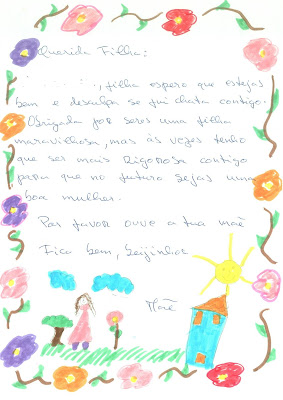 Querida Filha:
., filha espero que estejas
bem e desculpa se fui chata contigo.
Obrigada por seres uma filha
maravilhosa, mas às vezes tenho
que ser mais Rigorosa contigo
para que no futuro sejas uma
boa mulher.
Por favor ouve a tua mãe
Fica bem, beijinhos
Mãe